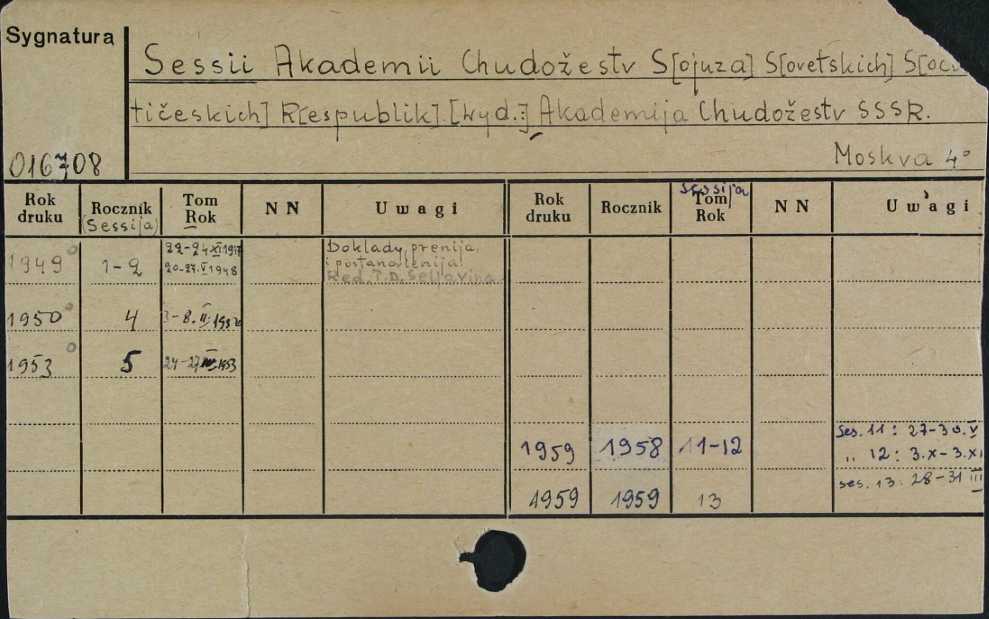 Sygnatura
Sessii Akademii Chudožestv S[ojuza] S[ovetskich] S[oc
tičeskich] R[espublik]. [Wyd.:] Akademija Chudožestv SSSR.
016708
Moskva 4°
Rok druku Rocznik (Sessija) Tom Rok NN Uwagi Rok druku Rocznik Sessija Tom Rok NN Uwagi
1949 1-2 22-24 XI 1947
20-27.V 1948
Doklady, prenija
i postanovlenija
Red.
1950 4
1953 5 24-27 1953
1959 1958 11-12 Ses. 11: 27-30.V
„ 12: 3.X-3.XI
1959 1959 13 ses. 13: 28-31 III